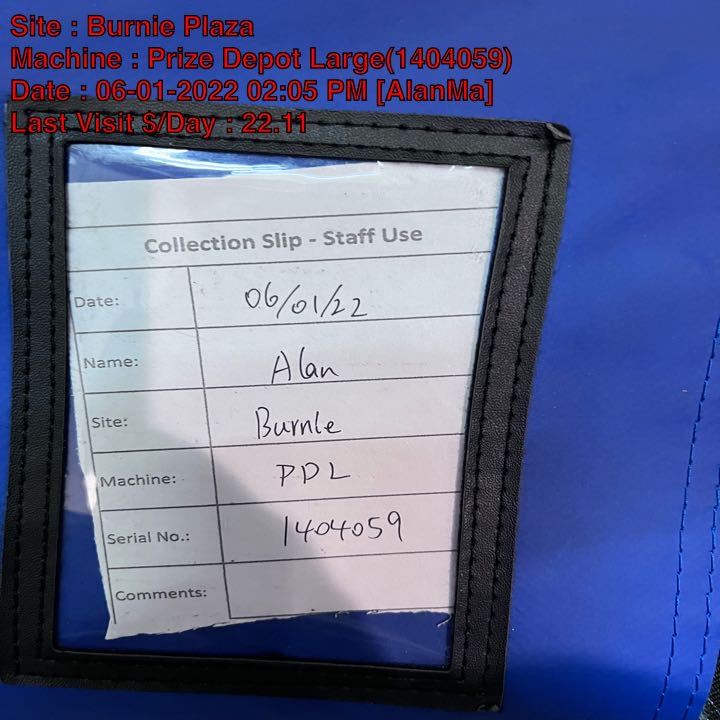 Site : Burnie Plaza
Machine : Prize Depot Large(1404059)
Date : 06-01-2022 02:05 PM [AlanMa]
Last Visit $/Day : 22.11
Collection Slip - Staff Use
Date: 06/01/22
Name: Alan
Site: Burnie
Machine: PDL
Serial No.: 1404059
Comments: